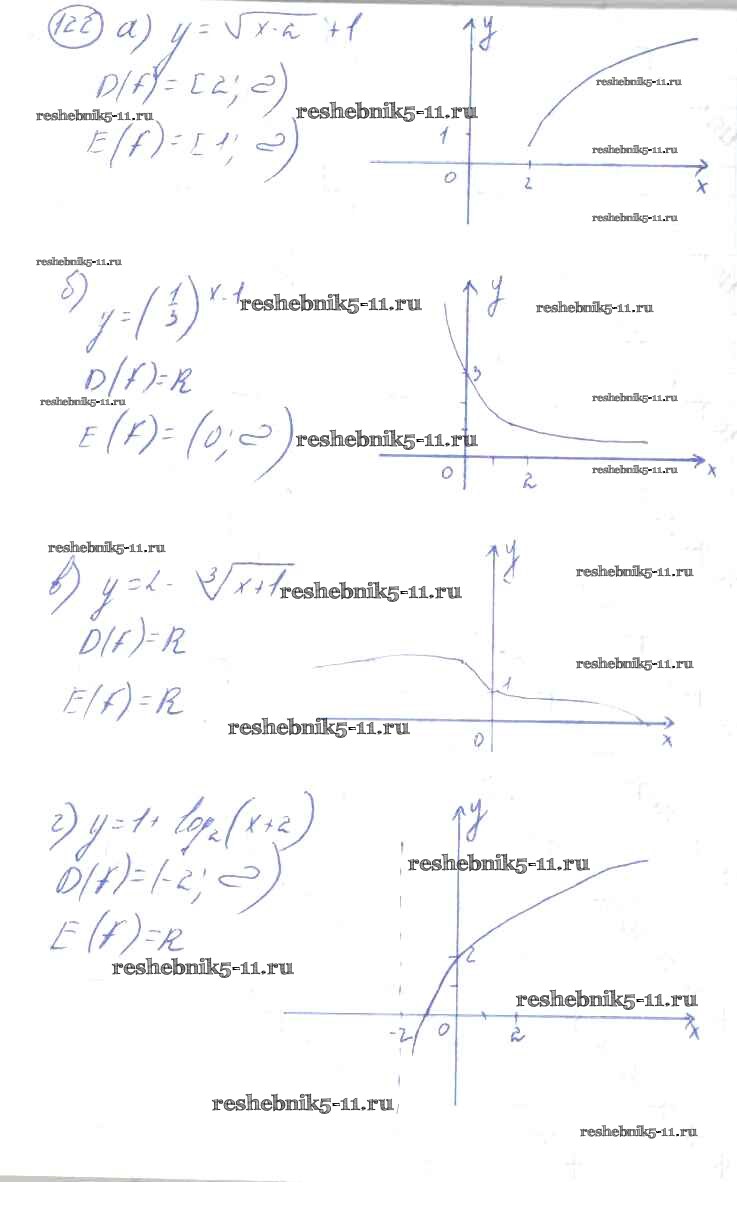 122 а) y = √x-2 + 1
D(f) = [2; ∞)
E(f) = [1; ∞)
y
1
0
2
x
reshebnik5-11.ru
reshebnik5-11.ru
reshebnik5-11.ru
reshebnik5-11.ru
reshebnik5-11.ru
reshebnik5-11.ru
б)
y = (1/3)^x-1
D(f) = R
E(f) = (0; ∞)
y
3
0
2
x
reshebnik5-11.ru
reshebnik5-11.ru
reshebnik5-11.ru
reshebnik5-11.ru
reshebnik5-11.ru
reshebnik5-11.ru
reshebnik5-11.ru
в) y = 2 - ∛x+1
D(f) = R
E(f) = R
y
1
0
x
reshebnik5-11.ru
reshebnik5-11.ru
reshebnik5-11.ru
reshebnik5-11.ru
reshebnik5-11.ru
г) y = 1 + log₂(x+2)
D(f) = (-2; ∞)
E(f) = R
y
2
-2
0
2
x
reshebnik5-11.ru
reshebnik5-11.ru
reshebnik5-11.ru
reshebnik5-11.ru
reshebnik5-11.ru